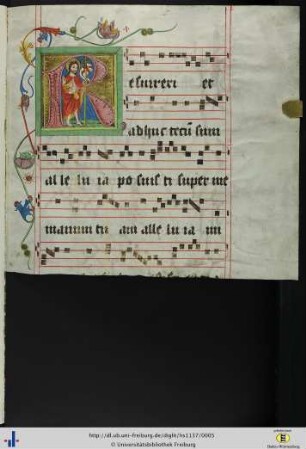 esurrexi et
adhuc tecū sum
al le lu ia po suis ti super me
manum tu am alle lu ia mi
http://dl.ub.uni-freiburg.de/diglit/hs1137/0005
© Universitätsbibliothek Freiburg